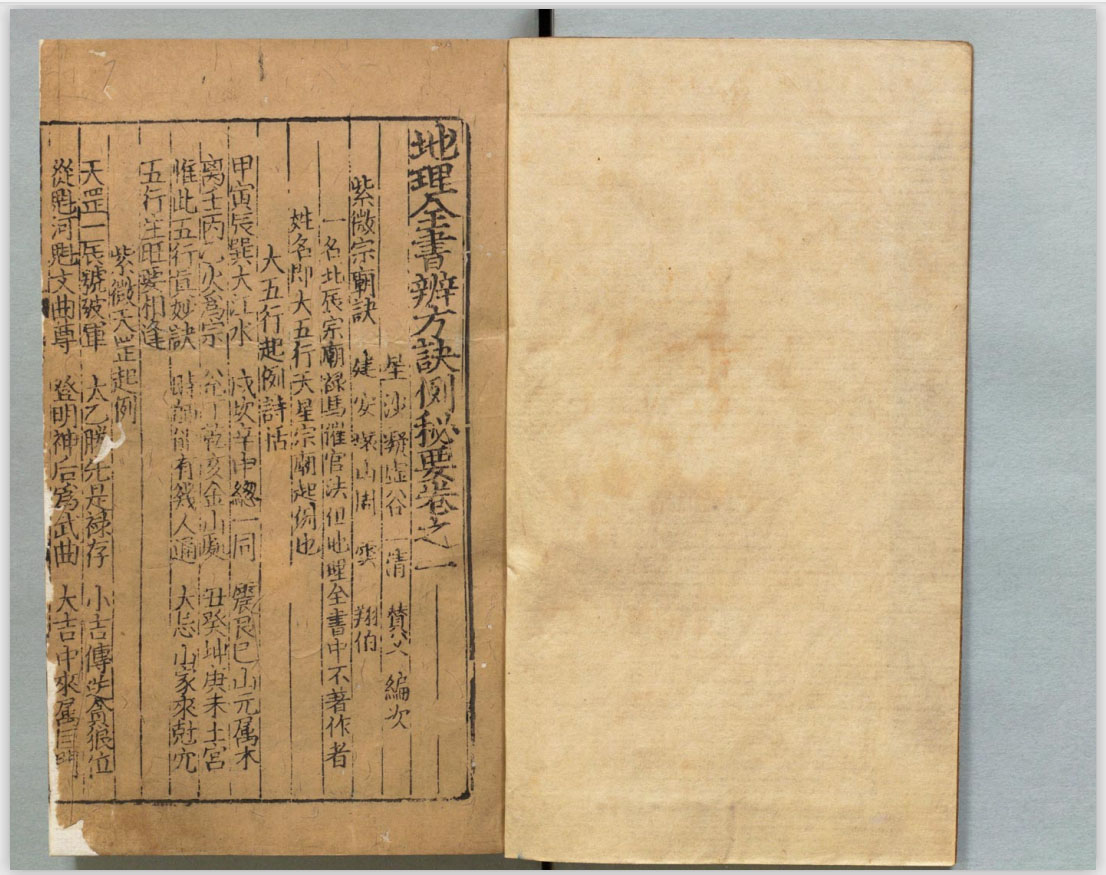 地理全書辨方訣例秘要卷之一
星沙凝虛谷一清贊父編次
紫微宗廟訣 建安瑞山周雲翔伯
一名北辰宗廟祿馬催官決但地理全書中不著作者
姓名即大五行天星宗廟起例也
大五行起例詩括
甲寅辰巽大江水 戌坎辛申總一同 震艮巳山元属木
离壬丙乙火爲宗 兊丁乾亥金山處 丑癸坤庚未土宮
惟此五行真妙訣 時師能有幾人通 大忌山家來尅宂
五行生旺要相逢
紫微天罡起例
天罡一氏號破軍 太乙勝光是祿存 小吉傳送貪狼位
從魁河魁文曲尊 登明神后爲武曲 大吉中來属巨門